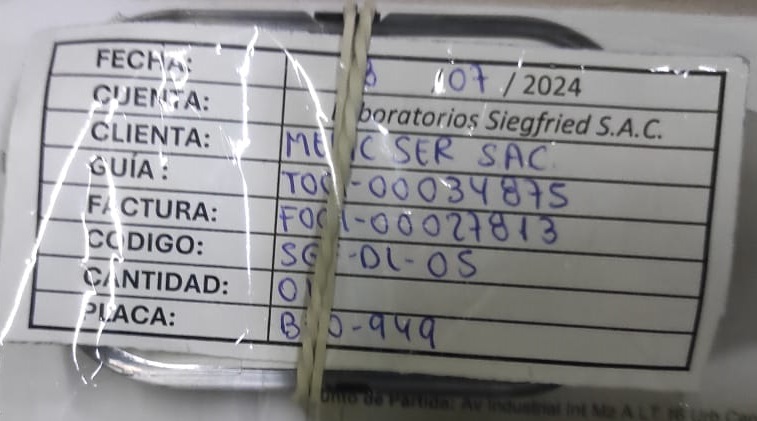 FECHA: /07/2024
CUENTA: Laboratorios Siegfried S.A.C.
CLIENTA: SER SAC
GUÍA: T001-00034875
FACTURA: F001-00027813
CODIGO: -DL-OS
CANTIDAD: 01
PLACA: -949
Punto de Partida: Av Industrial Int Mz A LT